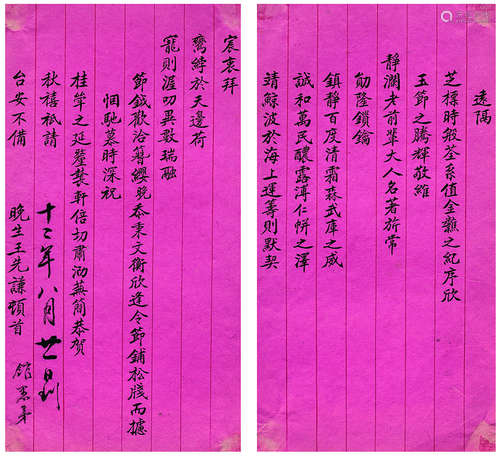 遠隔
芝標時殷荃系值金虀之紀序欣
玉節之騰輝敬維
靜瀾老前輩大人名著旂常
勛隆鎖鑰
鎮靜百度清霜森武庫之威
誠和萬民醲露溥仁帡之澤
靖鯨波於海上運籌則默契
宸衷拜
鸞綍於天邊荷
寵則渥叨異數瑞融
節鉞歡洽簪纓晚忝秉文衡欣逢令節鋪松牋而攄
悃馳慕時深祝
桂箏之延釐鼚軒倍切肅泐蕪簡恭賀
秋禧祇請
台安不備
晚生王先謙頓首
十二年八月廿一日到